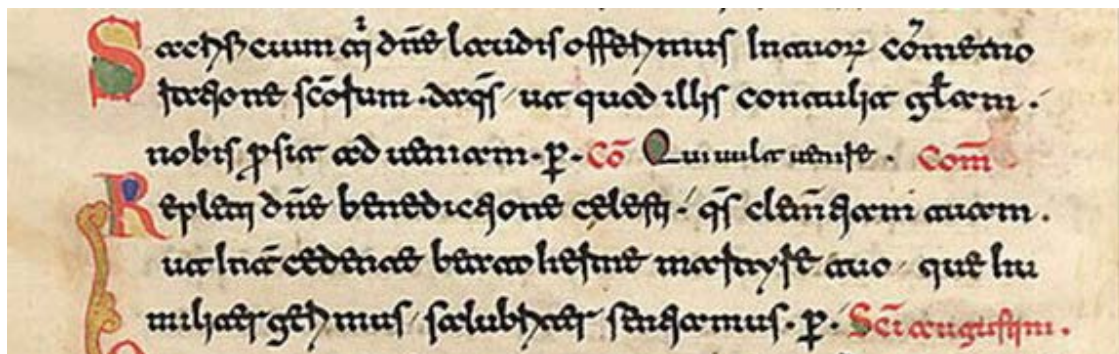 Sacrificium tⁱ dñe laudis offerimus Intuoꝝ cõmemo
ratione scõrum . da q̃s ut quod illis contulit gl̃am .
nobis ꝓsit ad ueniam . ꝑ . Cō Qui uult uenire . Com̄
Repleti dñe benedictione celesti q̃s clem̃tiam tuam .
ut Int̃cedente beato herme martyre tuo que hu
militer gerimus salubriter sentiamus . ꝑ . Sc̃i augustini .